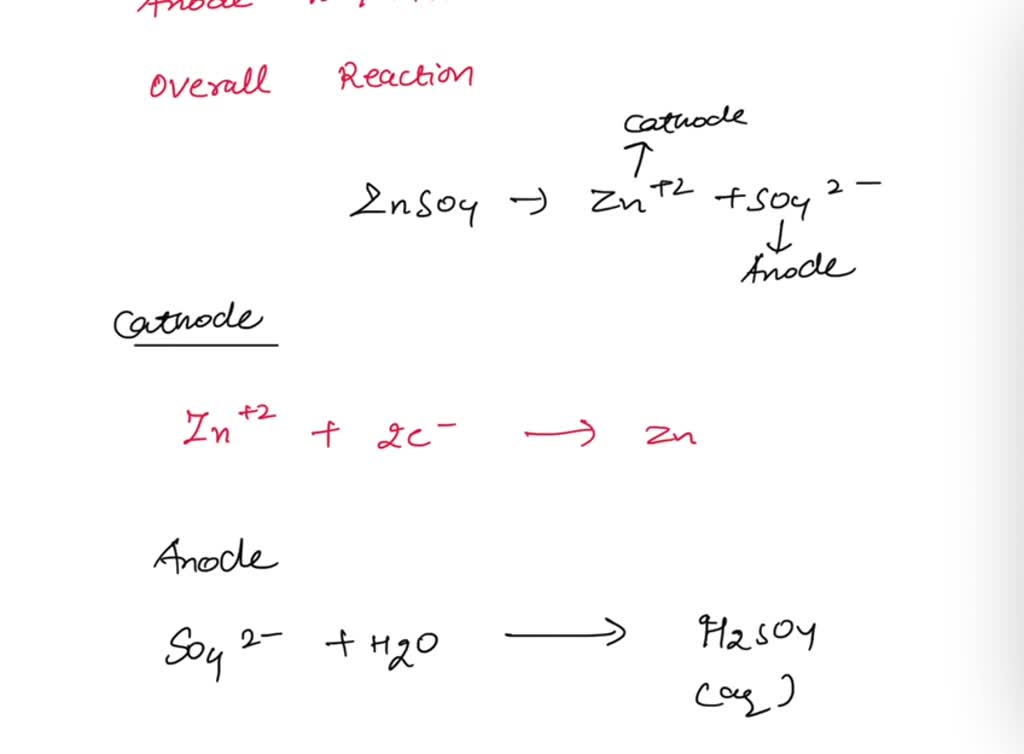 Anode
Overall Reaction
Cathode
↑
ZnSO4 → Zn+2 + SO4 2-
↓
Anode
Cathode
Zn+2 + 2e- → Zn
Anode
SO4 2- + H2O → H2SO4
(aq)